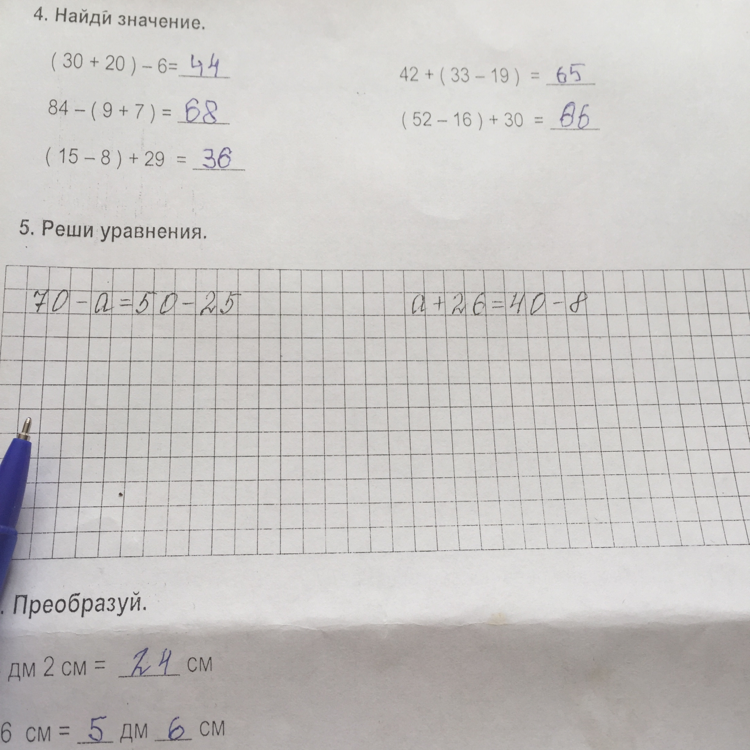 4. Найди значение.
( 30 + 20 ) – 6= 44
42 + ( 33 – 19 ) = 65
84 – ( 9 + 7 ) = 68
( 52 – 16 ) + 30 = 66
( 15 – 8 ) + 29 = 36
5. Реши уравнения.
70 – a = 50 – 25
a + 26 = 40 – 8
. Преобразуй.
дм 2 см = 24 см
6 см = 5 дм 6 см